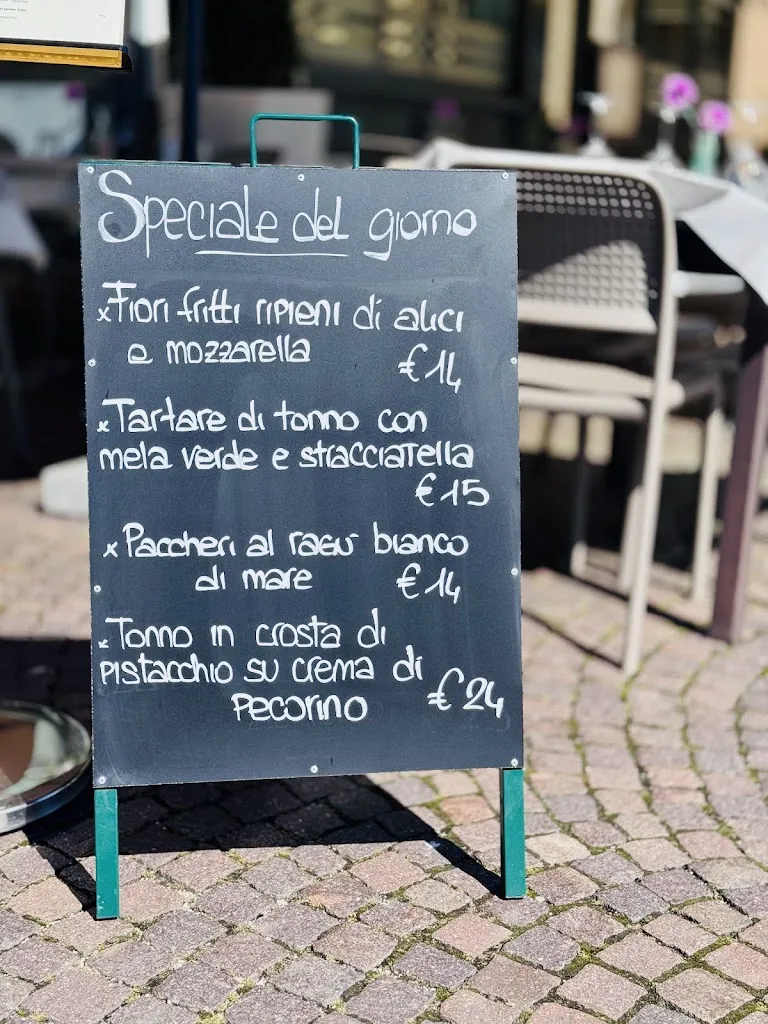 Speciale del giorno
x Fiori fritti ripieni di alici
e mozzarella €14
x Tartare di tonno con
mela verde e stracciatella
€15
x Paccheri al ragù bianco
di mare €14
x Tonno in crosta di
pistacchio su crema di
pecorino €24